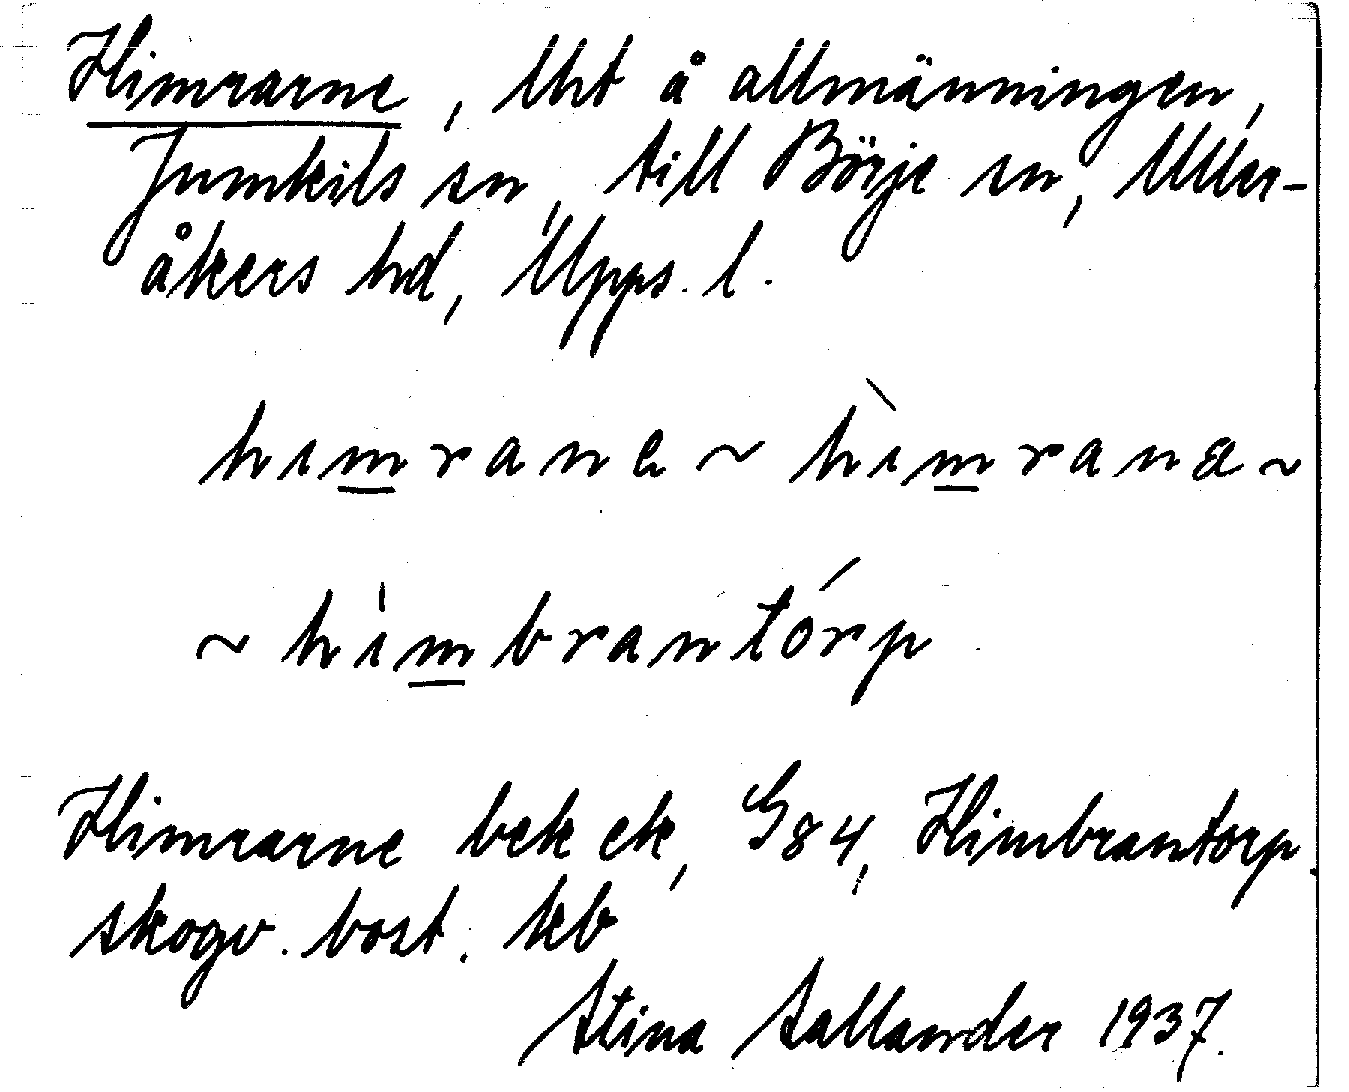 Himrarne, lht å allmänningen,
Jumkils sn, till Börje sn, Uller-
åkers hd, Upps. l.
himrane ~ hìmrana ~
~ himbrantórp
Himrarne bek ek, G84, Himbrantorp
skogv. bost. kb
Stina Sallander 1937.